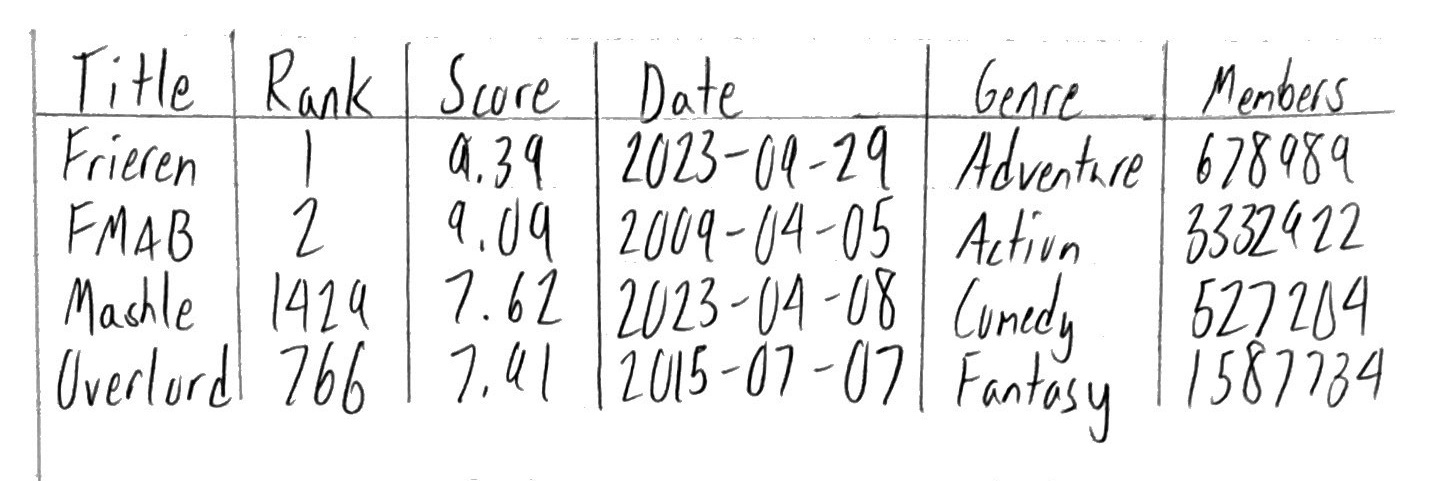 Title Rank Score Date Genre Members
Frieren 1 9.39 2023-09-29 Adventure 678989
FMAB 2 9.09 2009-04-05 Action 3332922
Mashle 1429 7.62 2023-04-08 Comedy 527204
Overlord 766 7.91 2015-07-07 Fantasy 1587734